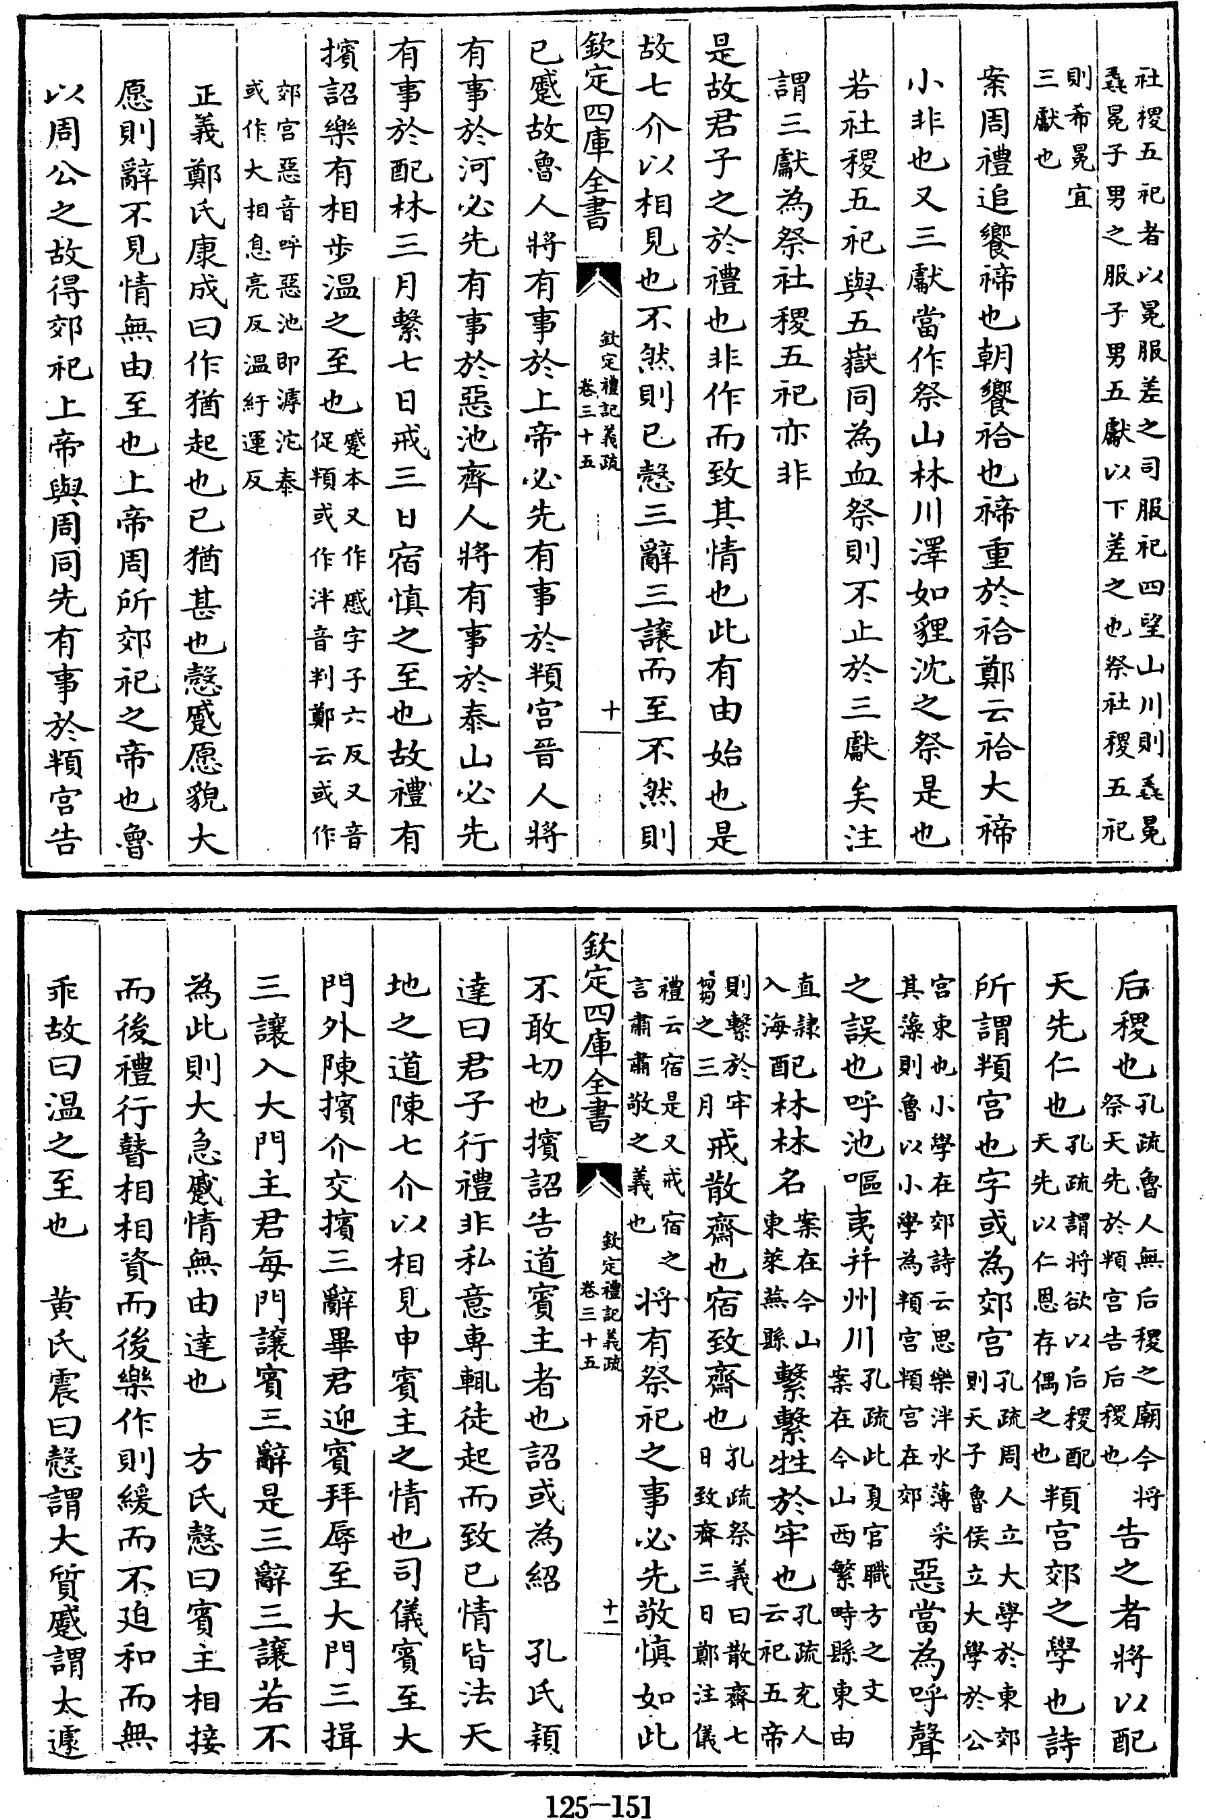 社稷五祀者以冕服差之司服祀四望山川則毳冕
毳冕子男之服子男五獻以下差之也祭社稷五祀
則希冕宜
三獻也
案周禮追饗禘也朝饗祫也禘重於祫鄭云祫大禘
小非也又三獻當作祭山林川澤如貍沈之祭是也
若社稷五祀與五嶽同為血祭則不止於三獻矣注
謂三獻為祭社稷五祀亦非
是故君子之於禮也非作而致其情也此有由始也是
故七介以相見也不然則已慤三辭三讓而至不然則
欽定四庫全書
欽定禮記義疏
卷三十五
十
已蹙故魯人將有事於上帝必先有事於頖宮晉人將
有事於河必先有事於惡池齊人將有事於泰山必先
有事於配林三月繫七日戒三日宿慎之至也故禮有
擯詔樂有相步溫之至也蹙本又作慼字子六反又音
促頖或作泮音判鄭云或作
郊宮惡音呼惡池即滹沱泰
或作大相息亮反溫紆運反
正義鄭氏康成曰作猶起也已猶甚也慤蹙愿貌大
愿則辭不見情無由至也上帝周所郊祀之帝也魯
以周公之故得郊祀上帝與周同先有事於頖宮告
后稷也孔疏魯人無后稷之廟今將
祭天先於頖宮告后稷也告之者將以配
天先仁也孔疏謂將欲以后稷配
天先以仁恩存偶之也頖宮郊之學也詩
所謂頖宮也字或為郊宮孔疏周人立大學於東郊
則天子魯侯立大學於公
宮東也小學在郊詩云思樂泮水薄采
其藻則魯以小學為頖宮頖宮在郊惡當為呼聲
之誤也呼池嘔夷并州川孔疏此夏官職方之文
案在今山西繁時縣東由
直隸
入海配林林名案在今山
東萊蕪縣繫繫牲於牢也孔疏充人
云祀五帝
則繫於牢
芻之三月戒散齋也宿致齋也孔疏祭義曰散齋七
日致齊三日鄭注儀
禮云宿是又戒宿之
言肅肅敬之義也將有祭祀之事必先敬慎如此
欽定四庫全書
欽定禮記義疏
卷三十五
十一
不敢切也擯詔告道賓主者也詔或為紹 孔氏穎
達曰君子行禮非私意專輒徒起而致已情皆法天
地之道陳七介以相見申賓主之情也司儀賓至大
門外陳擯介交擯三辭畢君迎賓拜辱至大門三揖
三讓入大門主君每門讓賓三辭是三辭三讓若不
為此則大急蹙情無由達也 方氏慤曰賓主相接
而後禮行瞽相相資而後樂作則緩而不迫和而無
乖故曰溫之至也 黃氏震曰慤謂大質蹙謂太遽
125-151